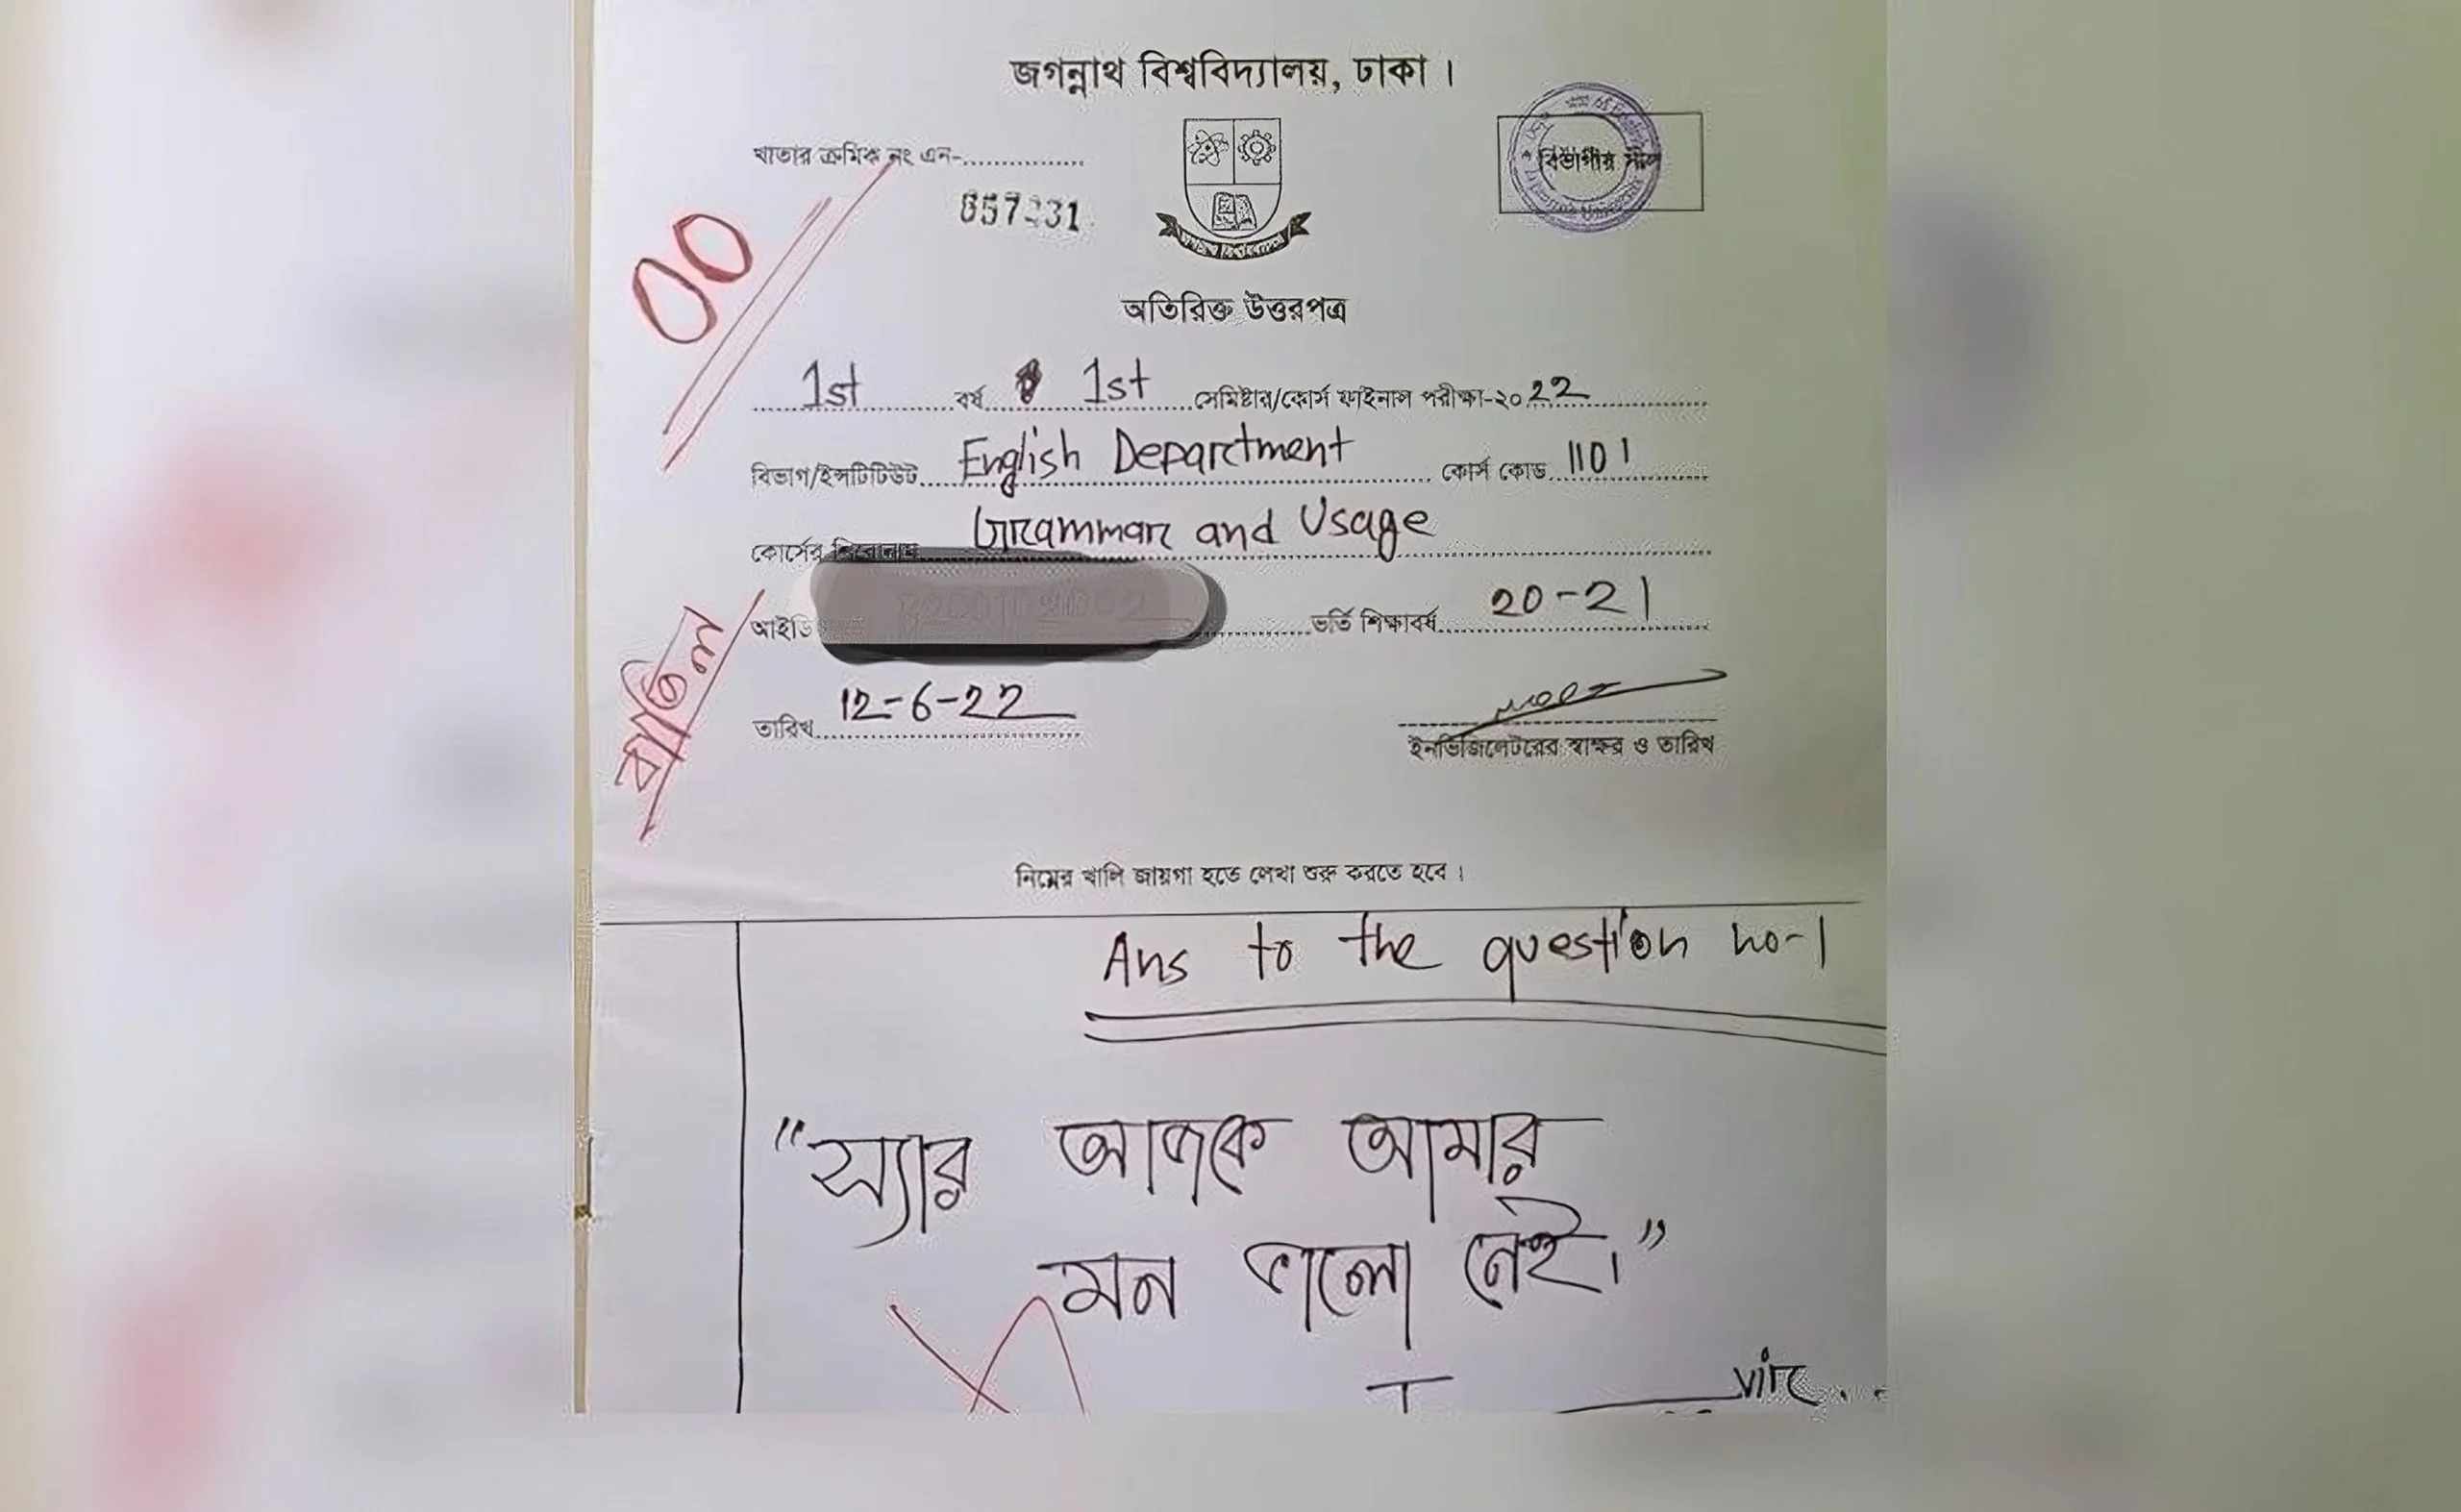 জগন্নাথ বিশ্ববিদ্যালয়, ঢাকা।
খাতার ক্রমিক নং এন-
বিভাগীয় সীল
00
অতিরিক্ত উত্তরপত্র
1st বর্ষ 1st সেমিষ্টার/কোর্স ফাইনাল পরীক্ষা-২০22
বিভাগ/ইন্সটিটিউট English Department কোর্স কোড 1101
কোর্সের Grammar and Usage
আইডি ভর্তি শিক্ষাবর্ষ 20-21
বাতিল
তারিখ 12-6-22
ইনভিজিলেটরের স্বাক্ষর ও তারিখ
নিম্নের খালি জায়গা হতে লেখা শুরু করতে হবে।
Ans to the question no-1
"স্যার আজকে আমার
মন ভালো নেই।"